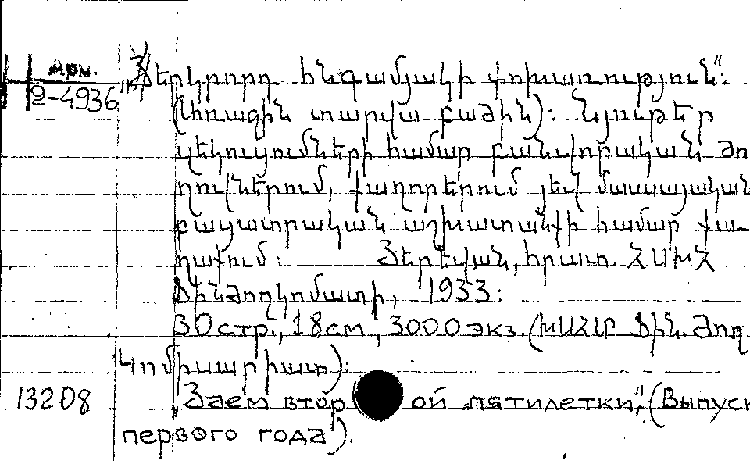 Арм.
2-4936
"Յերկրորդ հնգամյակի փոխառություն":
(Առաջին տարվա բաժին): Նյութեր
զեկուցումների համար բանվորական ժո-
ղովներում, քաղորեերում յեվ մասսայական
բացատրական աշխատանքի համար քա-
ղաքում: Յերեվան, հրատ. ՀՍԽՀ
Ֆինժողկոմատի, 1933:
30 стр., 18 см, 3000 экз. (ԽՍՀՄ Ֆին. Ժող.
Կոմիսարիատ):
13208 "Заем второй пятилетки", (Выпуск
первого года).